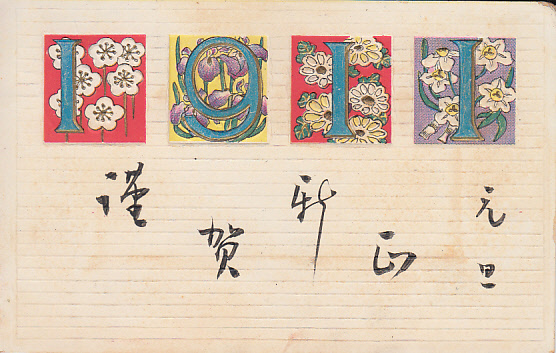 1911
謹賀新正
元旦